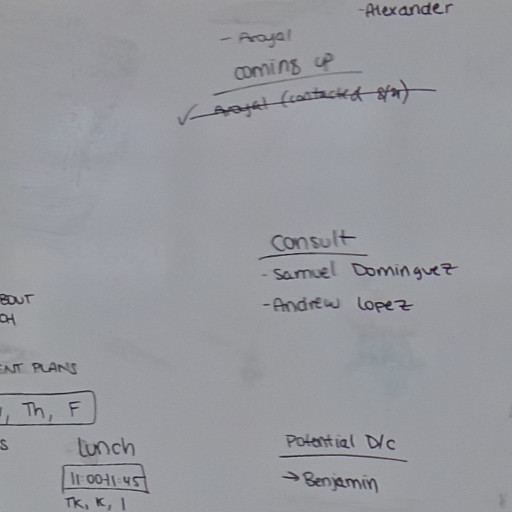 -Alexander
- Arayal
coming up
✓ Arayal (contacted 8/21)
Consult
- Samuel Dominguez
- Andrew Lopez
BOUT
CH
ENT PLANS
, Th, F
S
Lunch
11:00-11:45
TK, K, 1
Potential D/C
→ Benjamin